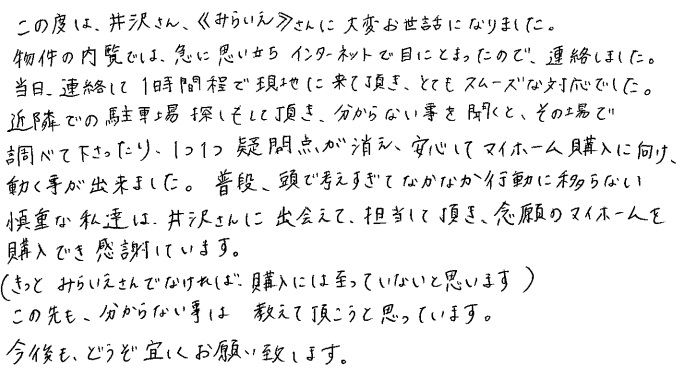 この度は、井沢さん、《みらいえ》さんに大変お世話になりました。
物件の内覧では、急に思い立ち インターネットで目にとまったので、連絡しました。
当日、連絡して1時間程で現地に来て頂き、とてもスムーズな対応でした。
近隣での駐車場探しもして頂き、分からない事を聞くと、その場で
調べて下さったり、1つ1つ疑問点が消え、安心してマイホーム購入に向け、
動く事が出来ました。普段、頭で考えすぎてなかなか行動に移らない
慎重な私達は、井沢さんに出会えて、担当して頂き、念願のマイホームを
購入でき感謝しています。
(きっと みらいえさんでなければ、購入には至っていないと思います)
この先も、分からない事は 教えて頂こうと思っています。
今後も、どうぞ宜しくお願い致します。